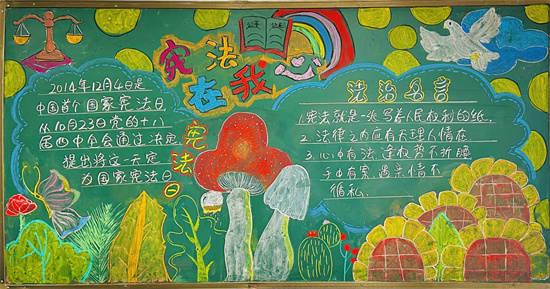 宪法
在我心
宪法日
2014年12月4日是
中国首个国家宪法日
从10月23日党的十八
届四中全会通过决定
提出将这一天定
为国家宪法日
法治名言
1.宪法就是一张写着人民权利的纸.
2.法律之内应有天理人情在
3.心中有法遇权势不折腰
手中有案遇亲情不
徇私.